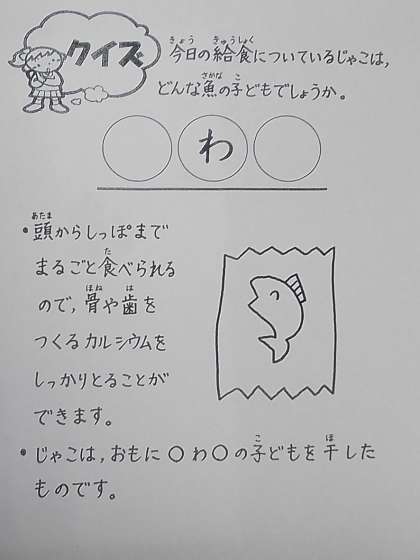 クイズ
今日の給食についているじゃこは,
どんな魚の子どもでしょうか。
わ
・頭からしっぽまで
まるごと食べられる
ので,骨や歯を
つくるカルシウムを
しっかりとることが
できます。
・じゃこは,おもに〇わ〇の子どもを干した
ものです。